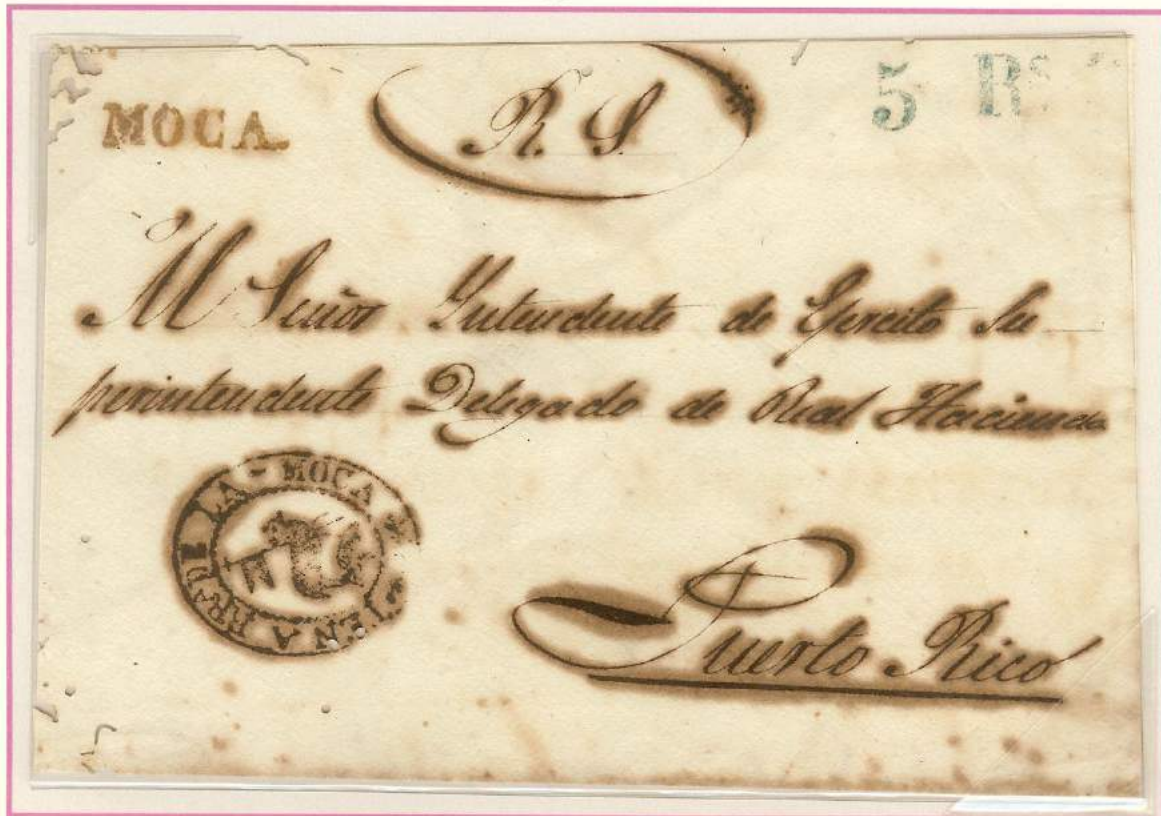 MOCA.
R. S.
5 Rs
Al Señor Yntendente de Egercito Su
perintendente Delegado de Real Hacienda
LA - MOCA
Puerto Rico